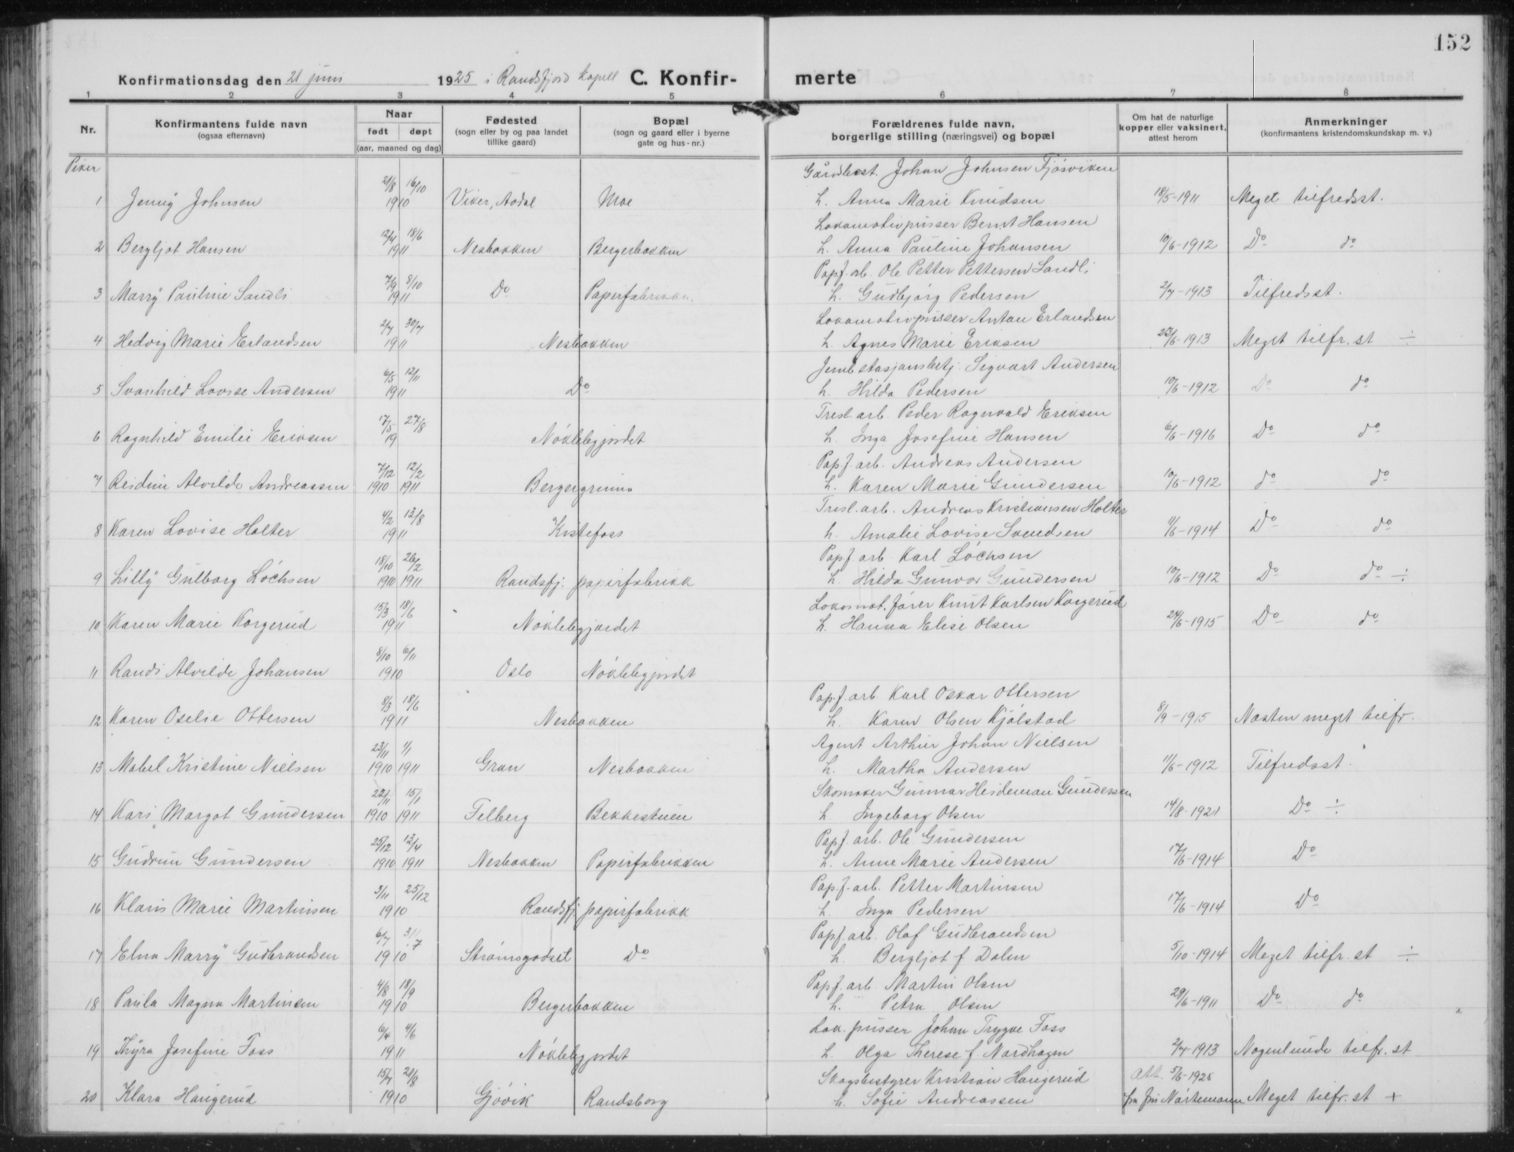 152
Konfirmationsdag den 21 juni 1925 i Randsfjord kapell C. Konfir- merte
1 2 3 4 5 6 7 8
Nr. Konfirmantens fulde navn (ogsaa efternavn) Naar født døpt (aar, maaned og dag) Fødested (sogn eller by og paa landet tillike gaard) Bopæl (sogn og gaard eller i byerne gate og hus-nr.) Forældrenes fulde navn, borgerlige stilling (næringsvei) og bopæl Om hat de naturlige kopper eller vaksinert, attest herom Anmerkninger (konfirmantens kristendomskundskap m. v.)
Piker
Johan Johnsen Fjøsviken
1 Jenny Johnsen 2/8 16/10 1910 Viker, Aadal Moe h. Anna Marie Knudsen 18/5-1911 Meget tilfredsst.
Lokomotivpusser Bernt Hansen
2 Bergljot Hansen 12/4 18/6 1911 Nesbakken Bergerbakken h. Anna Pauline Johansen 10/6-1912 Do do
Papf. arb. Ole Petter Pettersen Sandli
3 Marry Pauline Sandli 7/9 8/10 1911 Do Papirfabrikken h. Gudbjørg Pedersen 2/7-1913 Tilfredsst.
Lokomotivpusser Anton Erlandsen
4 Hedvig Marie Erlandsen 2/7 30/7 1911 Nesbakken h. Agnes Marie Eriksen 25/6-1913 Meget tilfr. st ÷
Jernb stasjonsbetj. Sigvart Andersen
5 Svanhild Lovise Andersen 6/5 12/11 1911 Do h. Hilda Pedersen 10/6-1912 Do do
Tresl. arb. Peder Ragnvald Eriksen
6 Ragnhild Emilie Eriksen 17/5 27/8 19 Nøklebygjordet h. Inga Josefine Hansen 6/6-1916 Do do
Papf. arb. Andreas Andersen
7 Reidun Alvilde Andreassen 7/12 12/2 1910 1911 Bergergrunn h. Karen Marie Gundersen 10/6-1912 do do
Tresl. arb. Andreas Kristiansen Holter
8 Karen Lovise Holter 4/2 13/8 1911 Kistefoss h. Amalie Lovise Svendsen 11/6-1914 Do do
Papf arb. Karl Løchsen
9 Lilly Gulborg Løchsen 18/10 26/2 1910 1911 Randsfj. papirfabrikk h. Hilda Gunvor Gundersen 10/6-1912 Do do ÷
Lokomot. fører Knut Karlsen Korgerud
10 Karen Marie Korgerud 15/3 18/6 1911 Nøklebygjordet h. Hanna Elise Olsen 24/6-1915 Do do
11 Randi Alvilde Johansen 8/10 6/11 1910 Oslo Nøklebygjordet
Papf arb Karl Oskar Ottersen
12 Karen Oselie Ottersen 8/3 18/6 1911 Nesbakken h. Karen Olsen Kjølstad 8/9-1915 Næsten meget tilfr.
Agent Arthur Johan Nielsen
13 Mabel Kristine Nielsen 23/11 1/1 1910 1911 Gran Nesbakken h. Martha Andersen 11/6-1912 Tilfredsst.
Skomaker Gunnar Heideman Gundersen
14 Kari Margot Gundersen 22/11 15/1 1910 1911 Felberg Bekkestuen h Ingeborg Olsen 14/8-1921 Do ÷
Papf. arb. Ole Gundersen
15 Gudrun Gundersen 25/12 13/4 1910 1911 Nesbakken Papirfabrikken h. Anne Marie Andersen 17/6-1914 Do
Papf. arb. Petter Martinsen
16 Klaris Marie Martinsen 3/11 25/12 1910 Randsfj. papirfabrikk h Inga Pedersen 17/6-1914 Do
Papf. arb. Olaf Gudbrandsen
17 Elna Marry Gudbrandsen 6/7 1910 Strømsgodset Do h. Bergljot f Dalen 5/10-1914 Meget tilfr. st ÷
Papf. arb. Martin Olsen
18 Paula Magna Martinsen 4/8 18/9 1910 Bergerbakken h. Petra Olsen 28/6-1911 Do do
Lok. pusser Johan Trygve Foss
19 Thyra Josefine Foss 6/4 4/6 1911 Nøklebygjordet h Olga Therese f Nordhagen 2/7-1913 Nogenlunde tilfr. st
Skogbestyrer Kristian Haugerud Att. 5/6-1925
20 Klara Haugerud 15/7 28/8 1910 Gjøvik Randsborg h. Sofie Andreassen fra Meget tilfr. st +